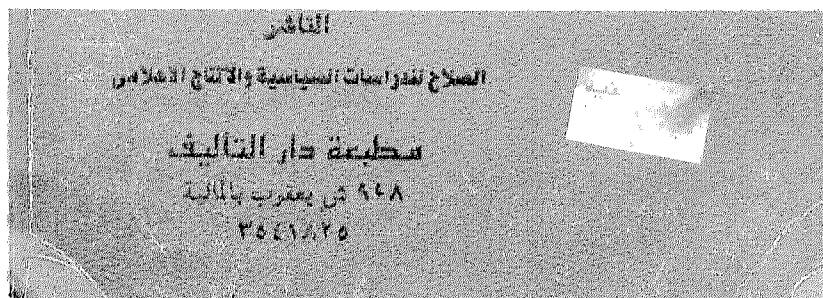 الناشر
الصلاح للدراسات السياسية والانتاج الاعلامى
مطبعة دار التأليف
ش يعقوب بالمالية
٣٥٤١٨٢٥